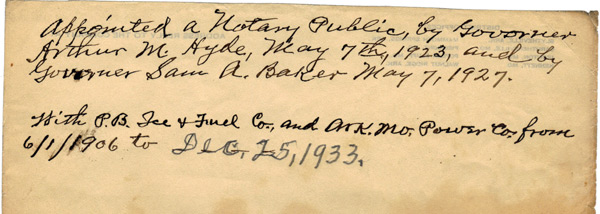 Appointed a Notary Public, by Governer
Arthur M. Hyde, May 7th, 1923, and by
Governer Sam A. Baker May 7, 1927.
With P.B. Ice & Fuel Co., and Ark. Mo. Power Co. from
6/1/1906 to Dec. 25, 1933.